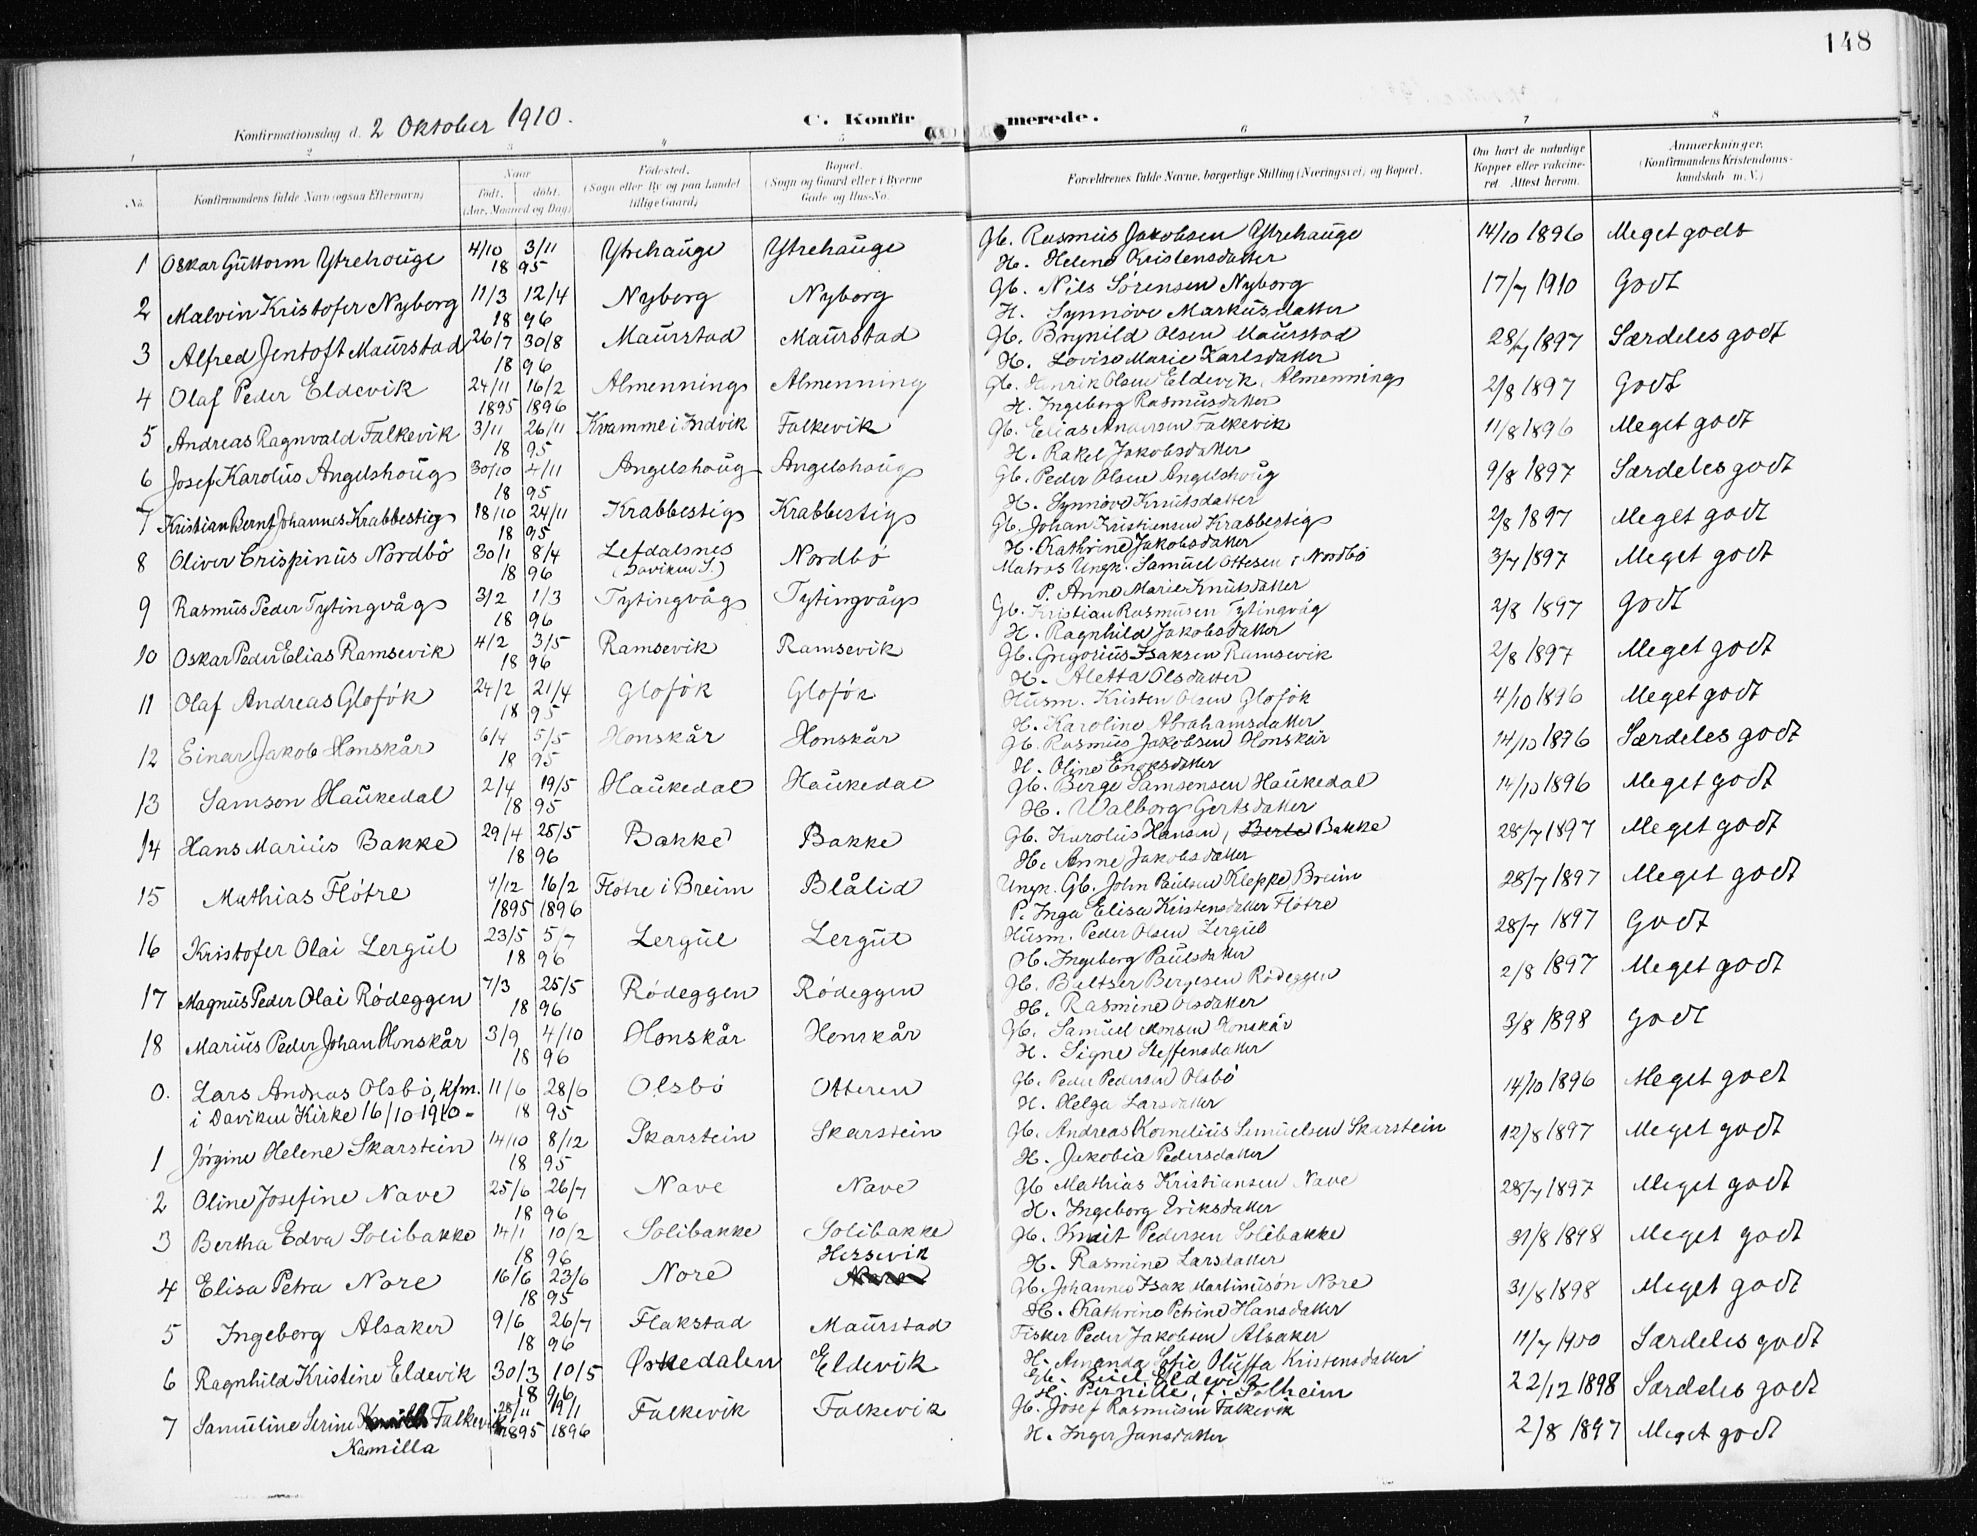 148
Konfirmationsdag d. 2 Oktober 1910.
C. Konfirmerede.
1 2 3 4 5 6 7 8
No. Konfirmandens fulde Navn (ogsaa Efternavn) Naar født. døbt. (Aar, Maaned og Dag) Fødested. (Sogn eller By og paa Landet tillige Gaard) Bopæl. (Sogn og Gaard eller i Byerne Gade og Hus-No. Forældrenes fulde Navne, borgerlige Stilling (Næringsvei) og Bopæl. Om havt de naturlige Kopper eller vakcineret. Attest herom. Anmærkninger. (Konfirmandens Kristendomskundskab m. V.)
1 Oskar Guttorm Ytrehouge 4/10 3/11 1895 Ytrehauge Ytrehauge Gb. Rasmus Jakobsen Ytrehauge 14/10 1896 Meget godt
H. Helene Kristensdatter
2 Malvin Kristofer Nyborg 11/3 12/4 1896 Nyborg Nyborg Gb. Nils Sørensen Nyborg 17/7 1910 Godt
H. Synnøve Markusdatter
3 Alfred Jentoft Maurstad 26/7 30/8 1896 Maurstad Maurstad Gb. Brynild Olsen Maurstad 28/7 1897 Særdeles godt
H. Lovise Marie Karlsdatter
4 Olaf Peder Eldevik 24/11 1895 16/2 1896 Almenning Almenning Gb. Henrik Olsen Eldevik, Almenning 2/8 1897 Godt
H. Ingeborg Rasmusdatter
5 Andreas Ragnvald Falkevik 3/11 26/11 1895 Kvamme i Indvik Falkevik Gb. Elias Andersen Falkevik 11/8 1896 Meget godt
H. Rakel Jakobsdatter
6 Josef Karolus Angelshoug 30/10 4/11 1895 Angelshoug Angelshoug Gb. Peder Olsen Angelshoug 9/8 1897 Særdeles godt
H. Synnøve Knutsdatter
7 Kristian Bernt Johannes Krabbestig 18/10 24/11 1895 Krabbestig Krabbestig Gb. Johan Kristiansen Krabbestig 2/8 1897 Meget godt
H. Kathrine Jakobsdatter
8 Oliver Crispinus Nordbø 30/1 8/4 1896 Lefdalsnes (Daviken S.) Nordbø Matros Ungk. Samuel Ottesen i Nordbø 3/7 1897 Meget godt
P. Anne Marie Knutsdatter
9 Rasmus Peder Tytingvåg 3/2 1/3 1896 Tytingvåg Tytingvåg Gb. Kristian Rasmusen Tytingvåg 2/8 1897 Godt
H. Ragnhild Jakobsdatter
10 Oskar Peder Elias Ramsevik 4/2 3/5 1896 Ramsevik Ramsevik Gb. Gregorius Isaksen Ramsevik 2/8 1897 Meget godt
H. Aletta Olsdatter
11 Olaf Andreas Gloføk 24/2 21/4 1895 Gloføk Gloføk Husm. Kristen Olsen Gloføk 4/10 1896 Meget godt
H. Karoline Abrahamsdatter
12 Einar Jakob Honskår 6/4 5/5 1895 Honskår Honskår Gb. Rasmus Jakobsen Honskår 14/10 1896 Særdeles godt
H. Oline Enoksdatter
13 Samson Haukedal 2/4 19/5 1895 Haukedal Haukedal Gb. Berge Samsonsen Haukedal 14/10 1896 Meget godt
H. Walborg Gertsdatter
14 Hans Marius Bakke 29/4 25/5 1896 Bakke Bakke Gb. Karolus Hansen, Bakke 28/7 1897 Meget godt
H. Anne Jakobsdatter
15 Mathias Fløtre 4/12 1895 16/2 1896 Fløtre i Breim Blålid Ungk. Gb. John Paulsen Kleppe, Breim 28/7 1897 Meget godt
P. Inga Elisa Kristensdatter Fløtre
16 Kristofer Olai Lergul 23/5 5/7 1896 Lergul Lergul Husm. Peder Olsen Lergul 28/7 1897 Godt
H. Ingeborg Paulsdatter
17 Magnus Peder Olai Rødeggen 7/3 25/5 1896 Rødeggen Rødeggen Gb. Baltser Bergesen Rødeggen 2/8 1897 Meget godt
H. Rasmine Olsdatter
18 Marius Peder Johan Honskår 3/9 4/10 1896 Honskår Honskår Gb. Samuel Monsen Honskår 3/8 1898 Godt
H. Signe Steffensdatter
0. Lars Andreas Olsbø, kfm. 11/6 28/6 1895 Olsbø Otteren Gb. Peder Pedersen Olsbø 14/10 1896 Meget godt
i Daviken Kirke 16/10 1910 - H. Helga Larsdatter
1 Jørgine Helene Skarstein 14/10 8/12 1895 Skarstein Skarstein Gb. Andreas Kornelius Samuelsen Skarstein 12/8 1897 Meget godt
H. Jakobia Pedersdatter
2 Oline Josefine Nave 25/6 26/7 1896 Nave Nave Gb Mathias Kristiansen Nave 28/7 1897 Meget godt
H. Ingeborg Eriksdatter
3 Bertha Edva Solibakke 14/1 10/2 1896 Solibakke Solibakke Gb. Knut Pedersen Solibakke 31/8 1898 Meget godt
H. Rasmine Larsdatter
4 Elisa Petra Nore 16/6 23/6 1895 Nore Hessevik Nore Gb. Johannes Isak Martinusøn Nore 31/8 1898 Meget godt
H. Kathrine Petrine Hansdatter
5 Ingeborg Alsaker 9/6 26/7 1896 Flakstad Maurstad Fisker Peder Jakobsen Alsaker 11/7 1900 Særdeles godt
H. Amanda Sofie Olufta Kristensdatter
6 Ragnhild Kristine Eldevik 30/3 10/5 1896 Ørkedalen Eldevik Gb. Eldevik 22/12 1898 Særdeles godt
H. Pernille, f. Solheim
7 Samuline Serine Falkevik 28/11 1895 19/1 1896 Falkevik Falkevik Gb. Josef Rasmusen Falkevik 2/8 1897 Meget godt
Kamilla H. Inger Jansdatter